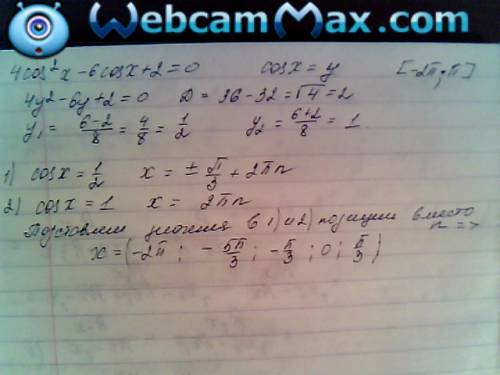 WebcamMax.com
4cos²x - 6cosx + 2 = 0 cosx = y [-2π; π]
4y² - 6y + 2 = 0 D = 36 - 32 = √4 = 2
y₁ = (6-2)/8 = 4/8 = 1/2 y₂ = (6+2)/8 = 1
1) cosx = 1/2 x = ± π/3 + 2πn
2) cosx = 1 x = 2πn
Подставляем значения в 1) и 2) позиции вместо
n =>
x = (-2π; -5π/3; -π/3; 0; π/3)